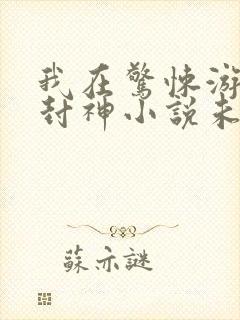 我在驚悚游
封神小說未
蘇亦謎